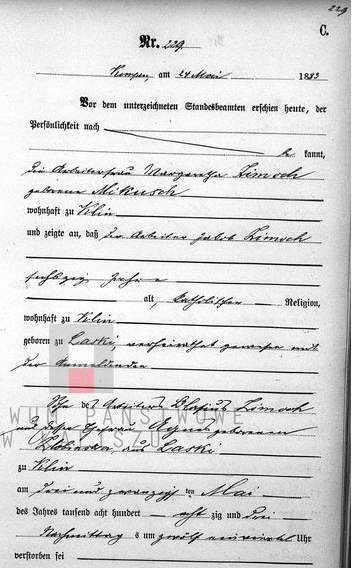 229
C.
Nr. 229.
Kempen, am 24 Mai 1883
Vor dem unterzeichneten Standesbeamten erschien heute, der
Persönlichkeit nach
be kannt,
die Arbeiterfrau Margaretha Zimoch
geborene Mikusch
wohnhaft zu Klin
und zeigte an, daß der Arbeiter Jakob Zimoch
sechszig Jahre
alt, katholischer Religion,
wohnhaft zu Klin
geboren zu Laski verheirathet gewesen mit
der Anmeldenden
Sohn des Arbeiters Blasius Zimoch
und dessen Ehefrau Agnes geborenen
aus Laski
zu Klin
am drei und zwanzigsten Mai
des Jahres tausend acht hundert acht zig und drei
Nachmittags um zwölf einviertel Uhr
verstorben sei